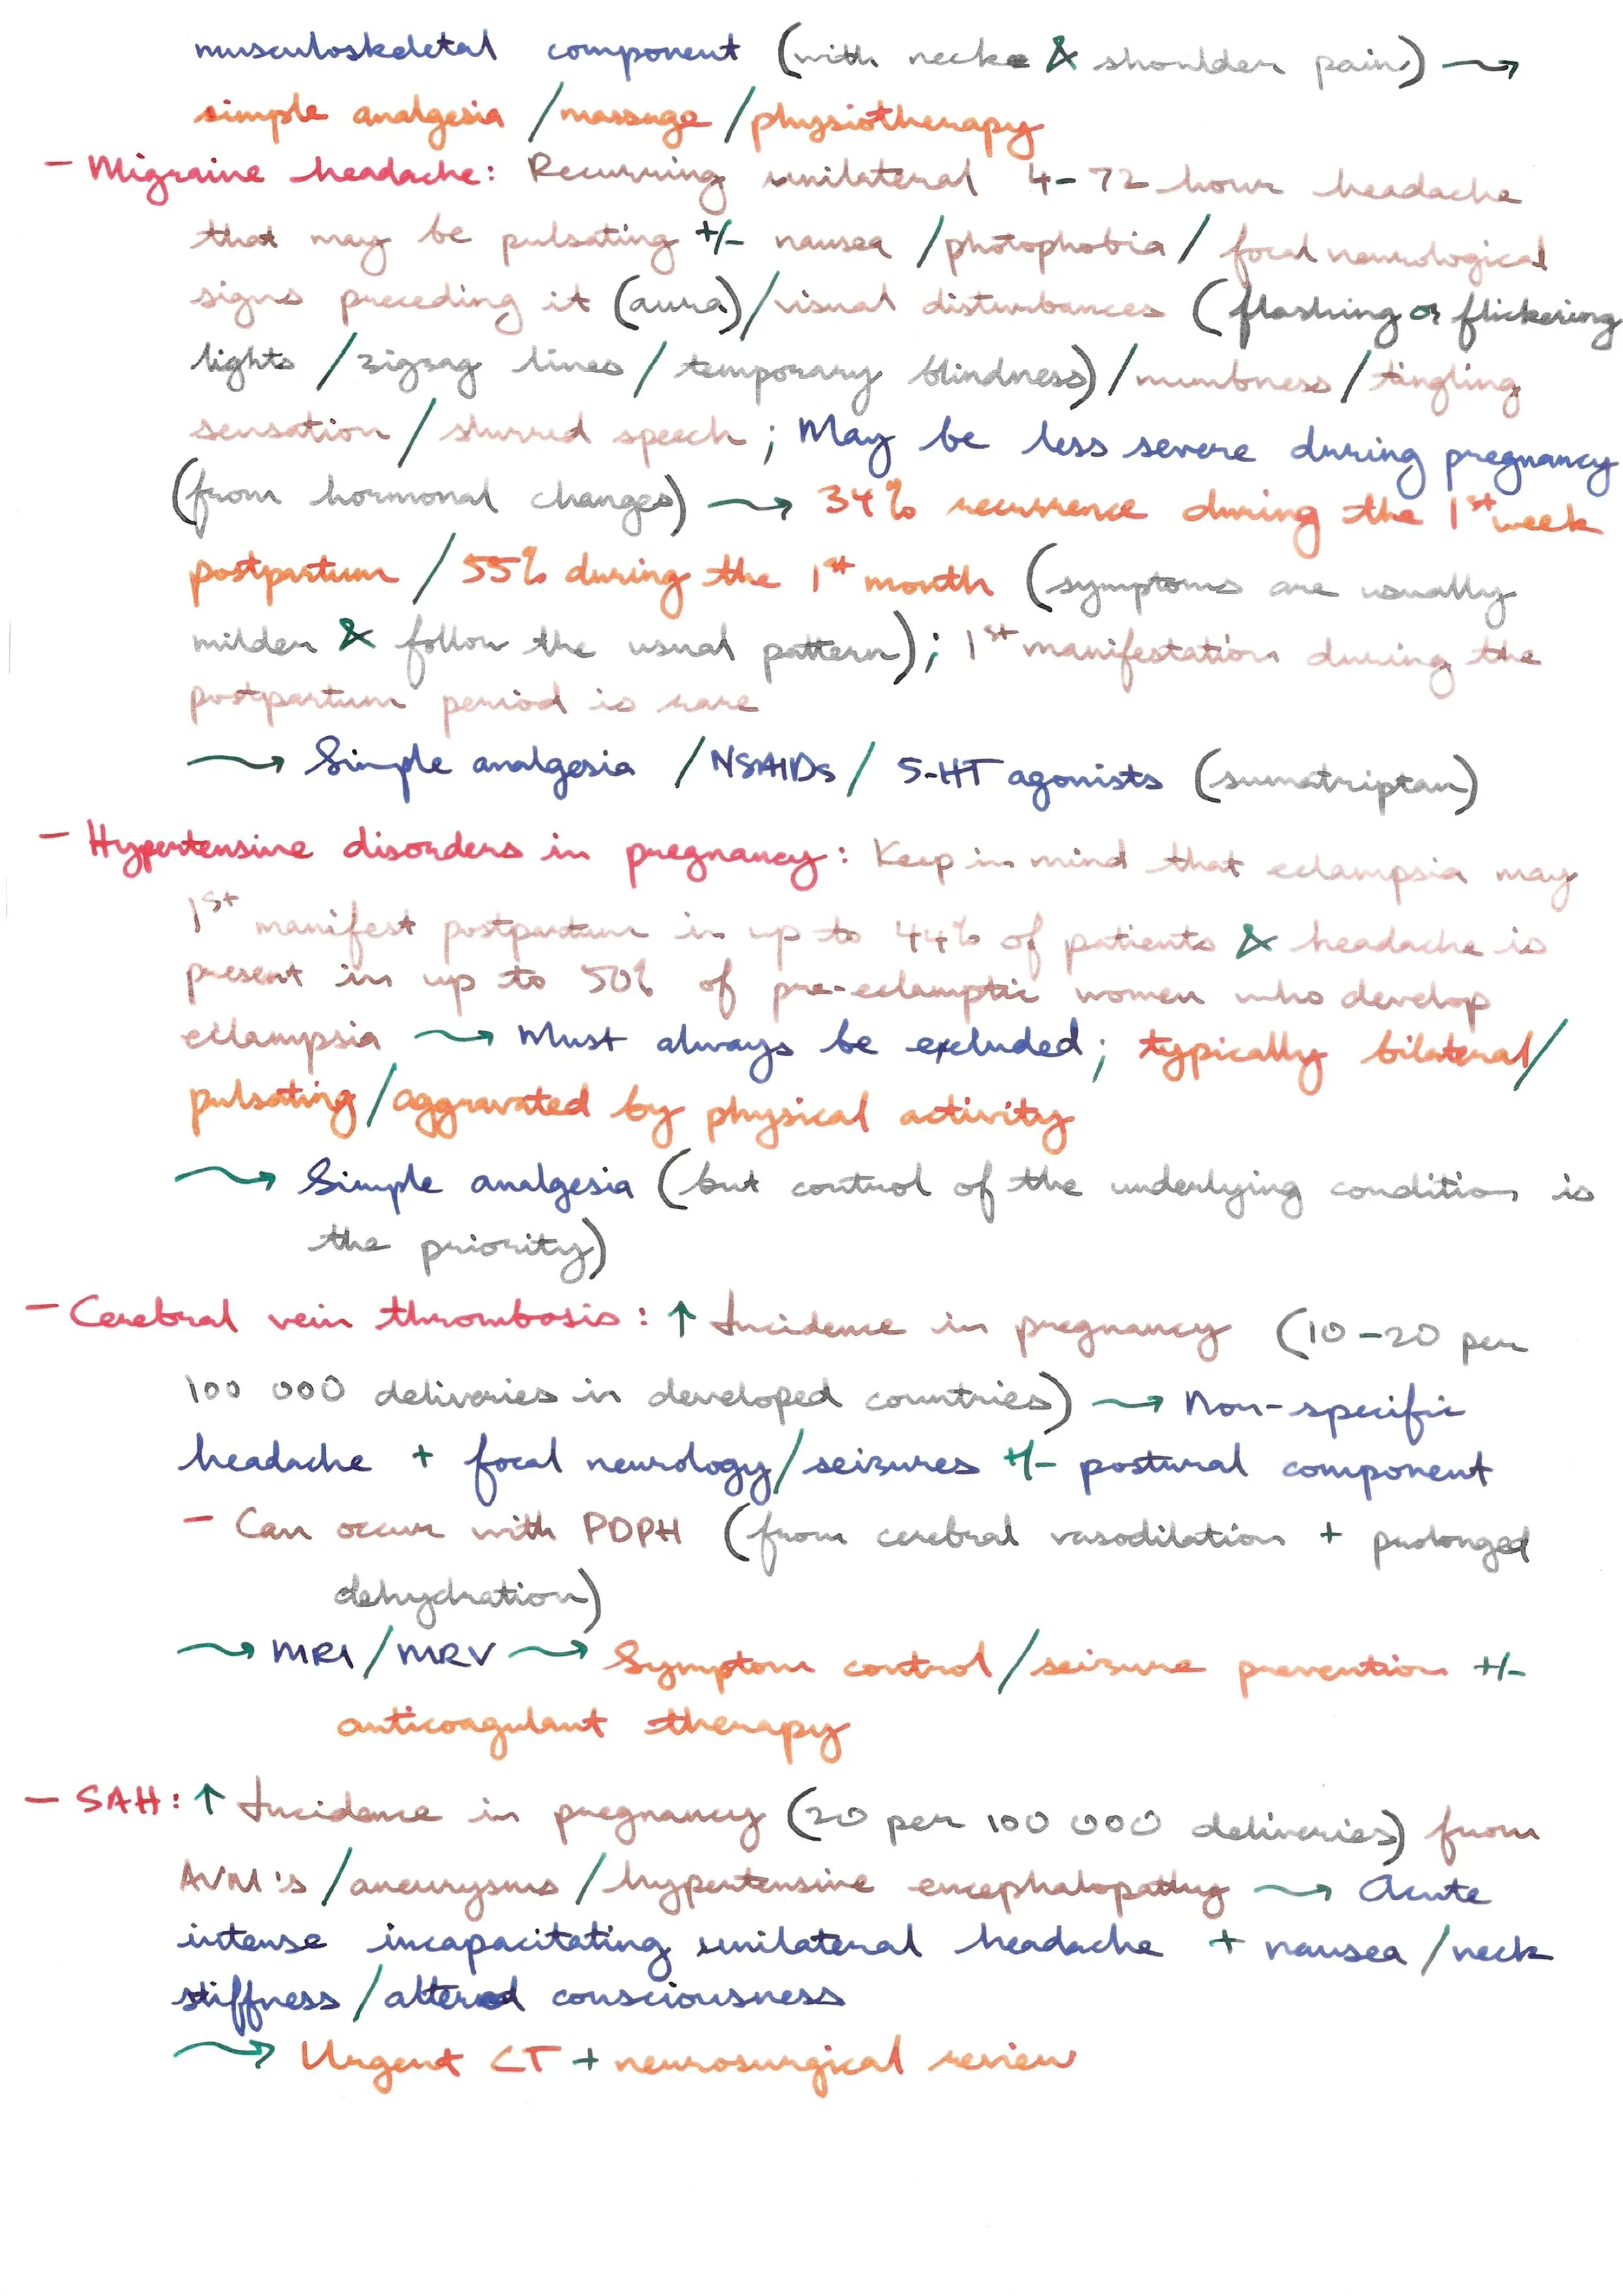 musculoskeletal component (with neck & shoulder pain) →
simple analgesia / massage / physiotherapy
- Migraine headache: Recurring unilateral 4-72 hour headache
that may be pulsating +/- nausea / photophobia / focal neurological
signs preceding it (aura) / visual disturbances (flashing or flickering
lights / zigzag lines / temporary blindness) / numbness / tingling
sensation / slurred speech ; May be less severe during pregnancy
(from hormonal changes) → 34% recurrence during the 1st week
postpartum / 55% during the 1st month (symptoms are usually
milder & follow the usual pattern); 1st manifestation during the
postpartum period is rare
→ Simple analgesia / NSAIDs / 5-HT agonists (sumatriptan)
- Hypertensive disorders in pregnancy: Keep in mind that eclampsia may
1st manifest postpartum in up to 44% of patients & headache is
present in up to 50% of pre-eclamptic women who develop
eclampsia → Must always be excluded; typically bilateral /
pulsating / aggravated by physical activity
→ Simple analgesia (but control of the underlying condition is
the priority)
- Cerebral vein thrombosis: ↑ Incidence in pregnancy (10-20 per
100 000 deliveries in developed countries) → Non-specific
headache + focal neurology / seizures +/- postural component
- Can occur with PDPH (from cerebral vasodilation + prolonged
dehydration)
→ MRI / MRV → Symptom control / seizure prevention +/-
anticoagulant therapy
- SAH: ↑ Incidence in pregnancy (20 per 100 000 deliveries) from
AVM's / aneurysms / hypertensive encephalopathy → Acute
intense incapacitating unilateral headache + nausea / neck
stiffness / altered consciousness
→ Urgent CT + neurosurgical review